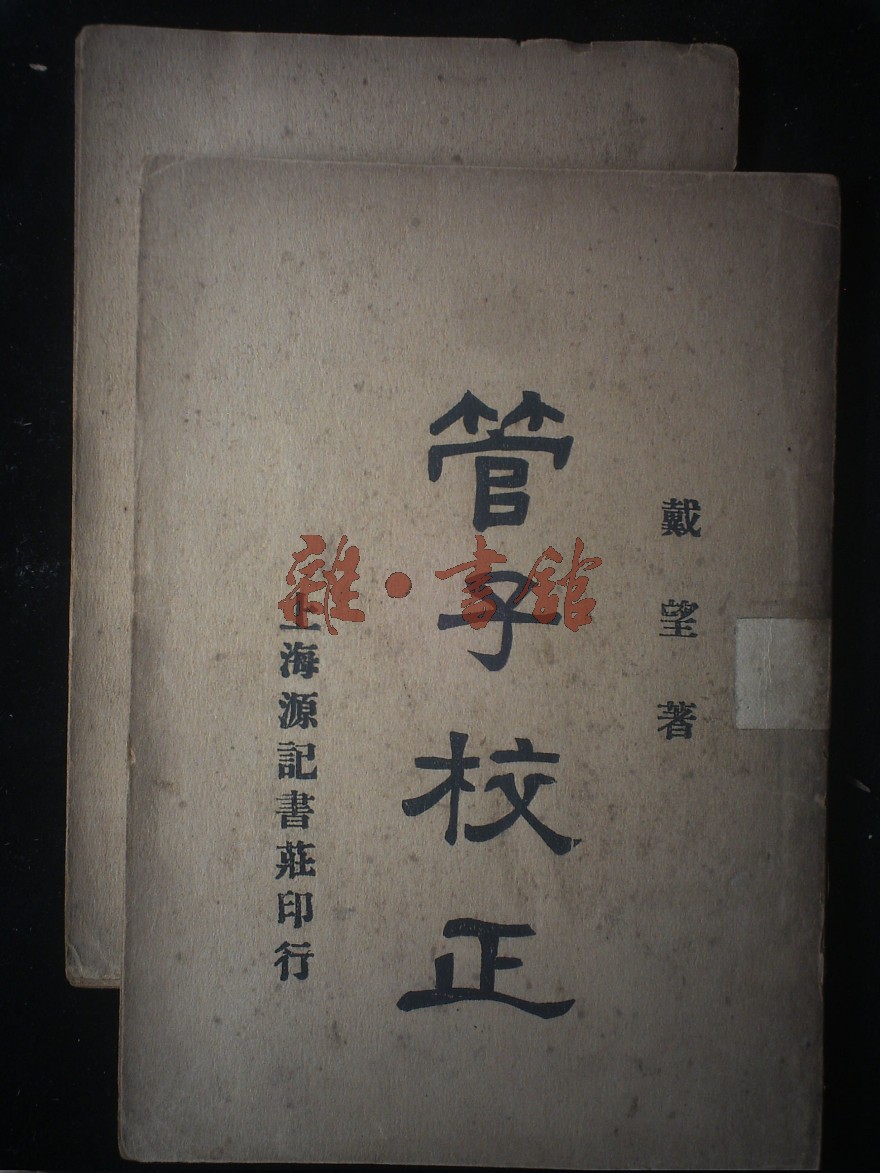 戴望著
管子校正
上海源記書莊印行
雜·書館